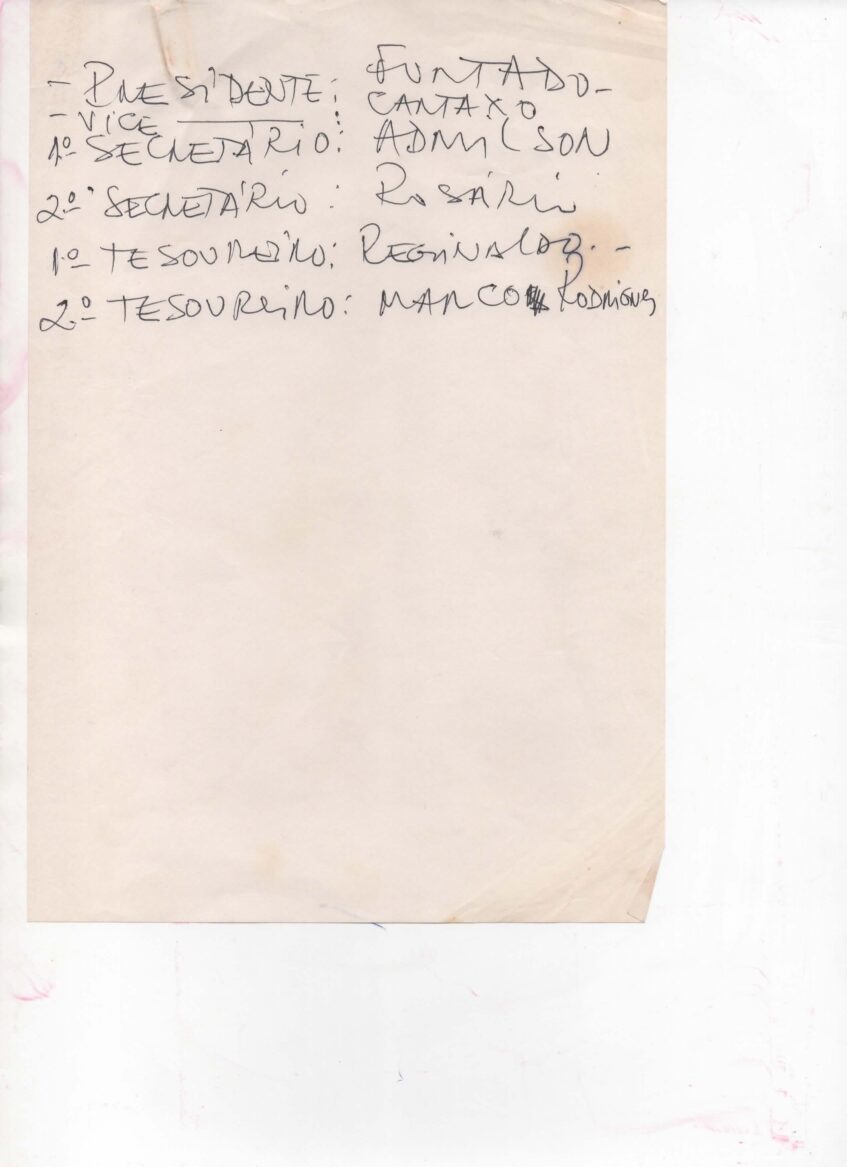 - PRESIDENTE: FURTADO-
- VICE ______ : CARTAXO
1º SECRETÁRIO: ADMILSON
2º SECRETÁRIO: ROSÁRIO
1º TESOUREIRO: REGINALDO. -
2º TESOUREIRO: MARCO RODRIGUES